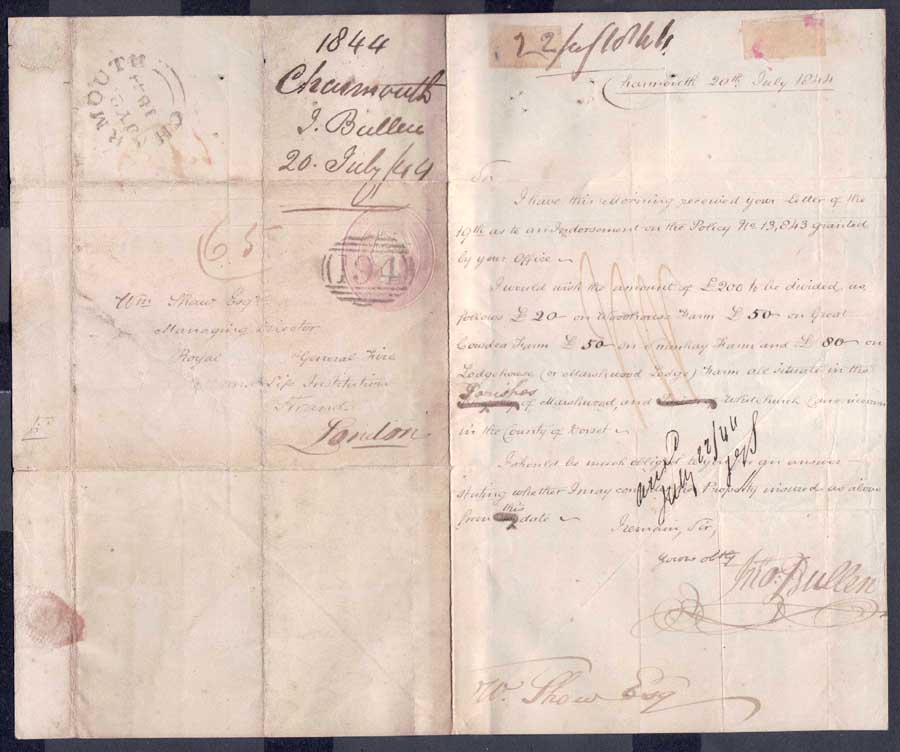 CHARMOUTH
JY 20
1844
1844
Charmouth
J. Bullen
20. July/44
65
194
Wm Shaw Esqr
Managing Director
Royal General Fire
and Life Institution
Strand
London
22
Charmouth 20th July 1844
Sir
I have this Morning received your Letter of the
19th as to an Indorsement on the Policy No. 13,843 granted
by your Office
I would wish the amount of £200 to be divided as
follows £20 on Woodhouse Farm £50 on Great
Cowdea Farm £50 on Farm and £80 on
Lodgehouse (or Marshwood Lodge) Farm all situate in the
Parishes of Marshwood, and Whitchurch Canonicorum
in the County of Dorset
I should be much obliged to you for an answer
stating whether I may consider the Property insured as above
from this date
I remain, Sir,
Yours obtly
Jno. Bullen
ansd
July 22/44
W. Shaw Esq